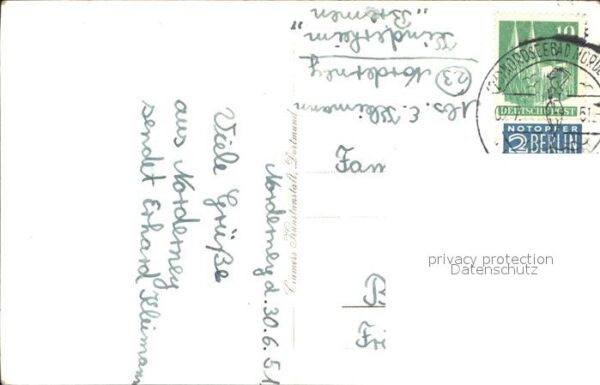 Norderney d. 30.6.51
Viele Grüße
aus Norderney
sendet Erhard Kleimann
Cramers Kunstanstalt, Dortmund
Abs. E. Kleimann
(23) Norderney
Kinderheim
"Bremen"
Fam
10
DEUTSCHE POST
NOTOPFER
2 BERLIN
NORDSEEBAD NORDE
privacy protection
Datenschutz